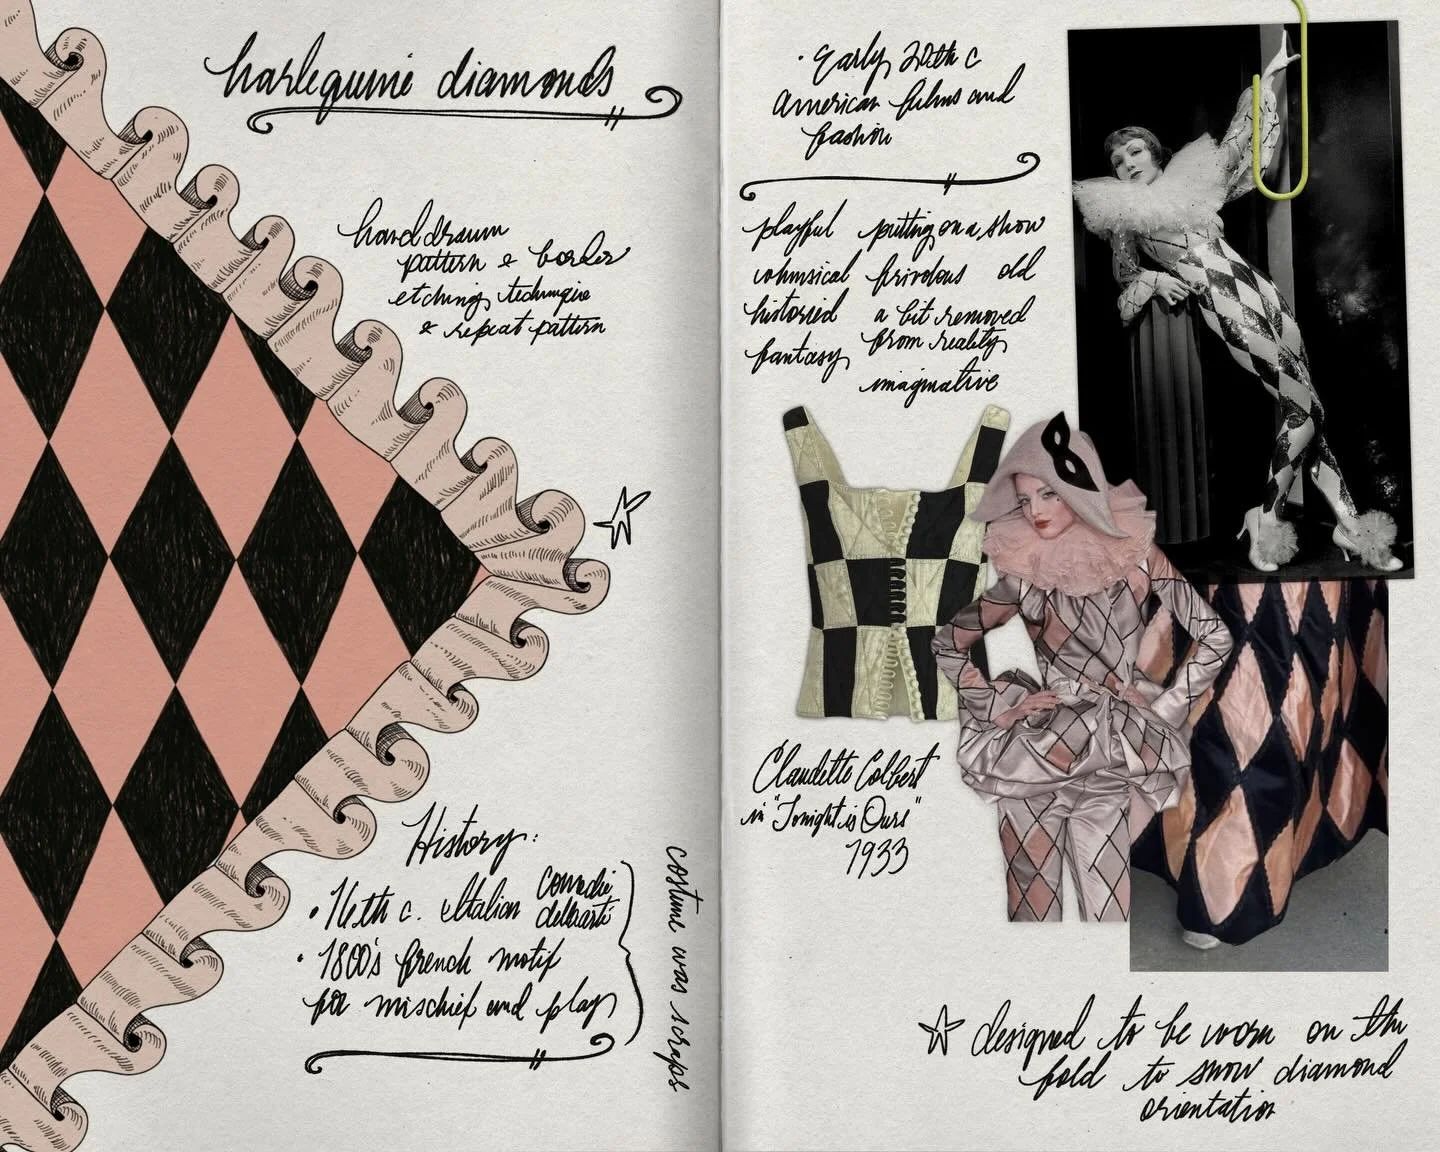 harlequine diamonds
hand drawn
pattern & border
etching technique
& repeat pattern
History:
• 16th c. Italian comedie dellearti
• 1800's french motif
for mischief and play
costume was scraps
• Early 20th c
American films and
fashion
playful
whimsical
historied
fantasy
putting on a show
frivolous old
a bit removed
from reality
imaginative
Claudette Colbert
in "Tonight is Ours"
1933
designed to be worn on the
fold to show diamond
orientation